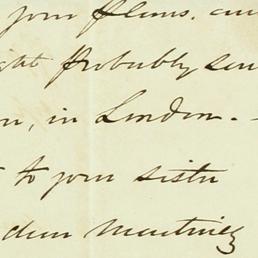 your plans. and
ght probably see
n, in London. -
to your sister
dear Martinez